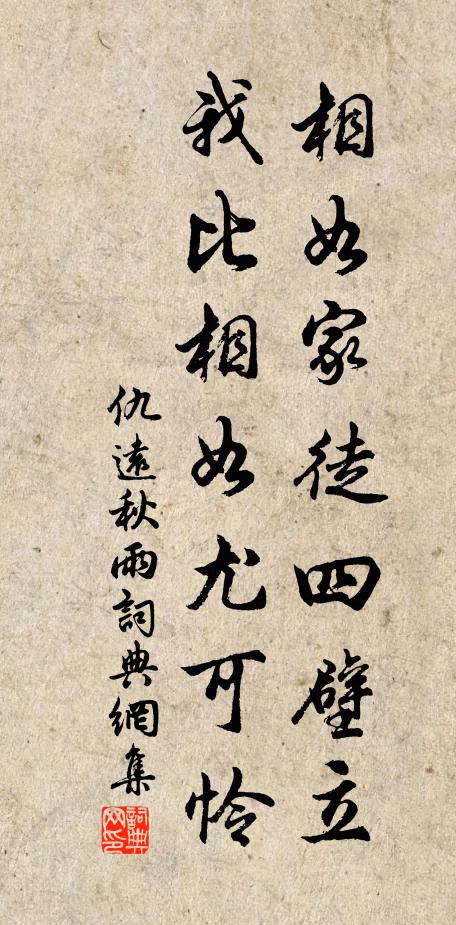 相如家徒四壁立
我比相如尤可怜
仇遠秋雨詞典網集
詞典
网印